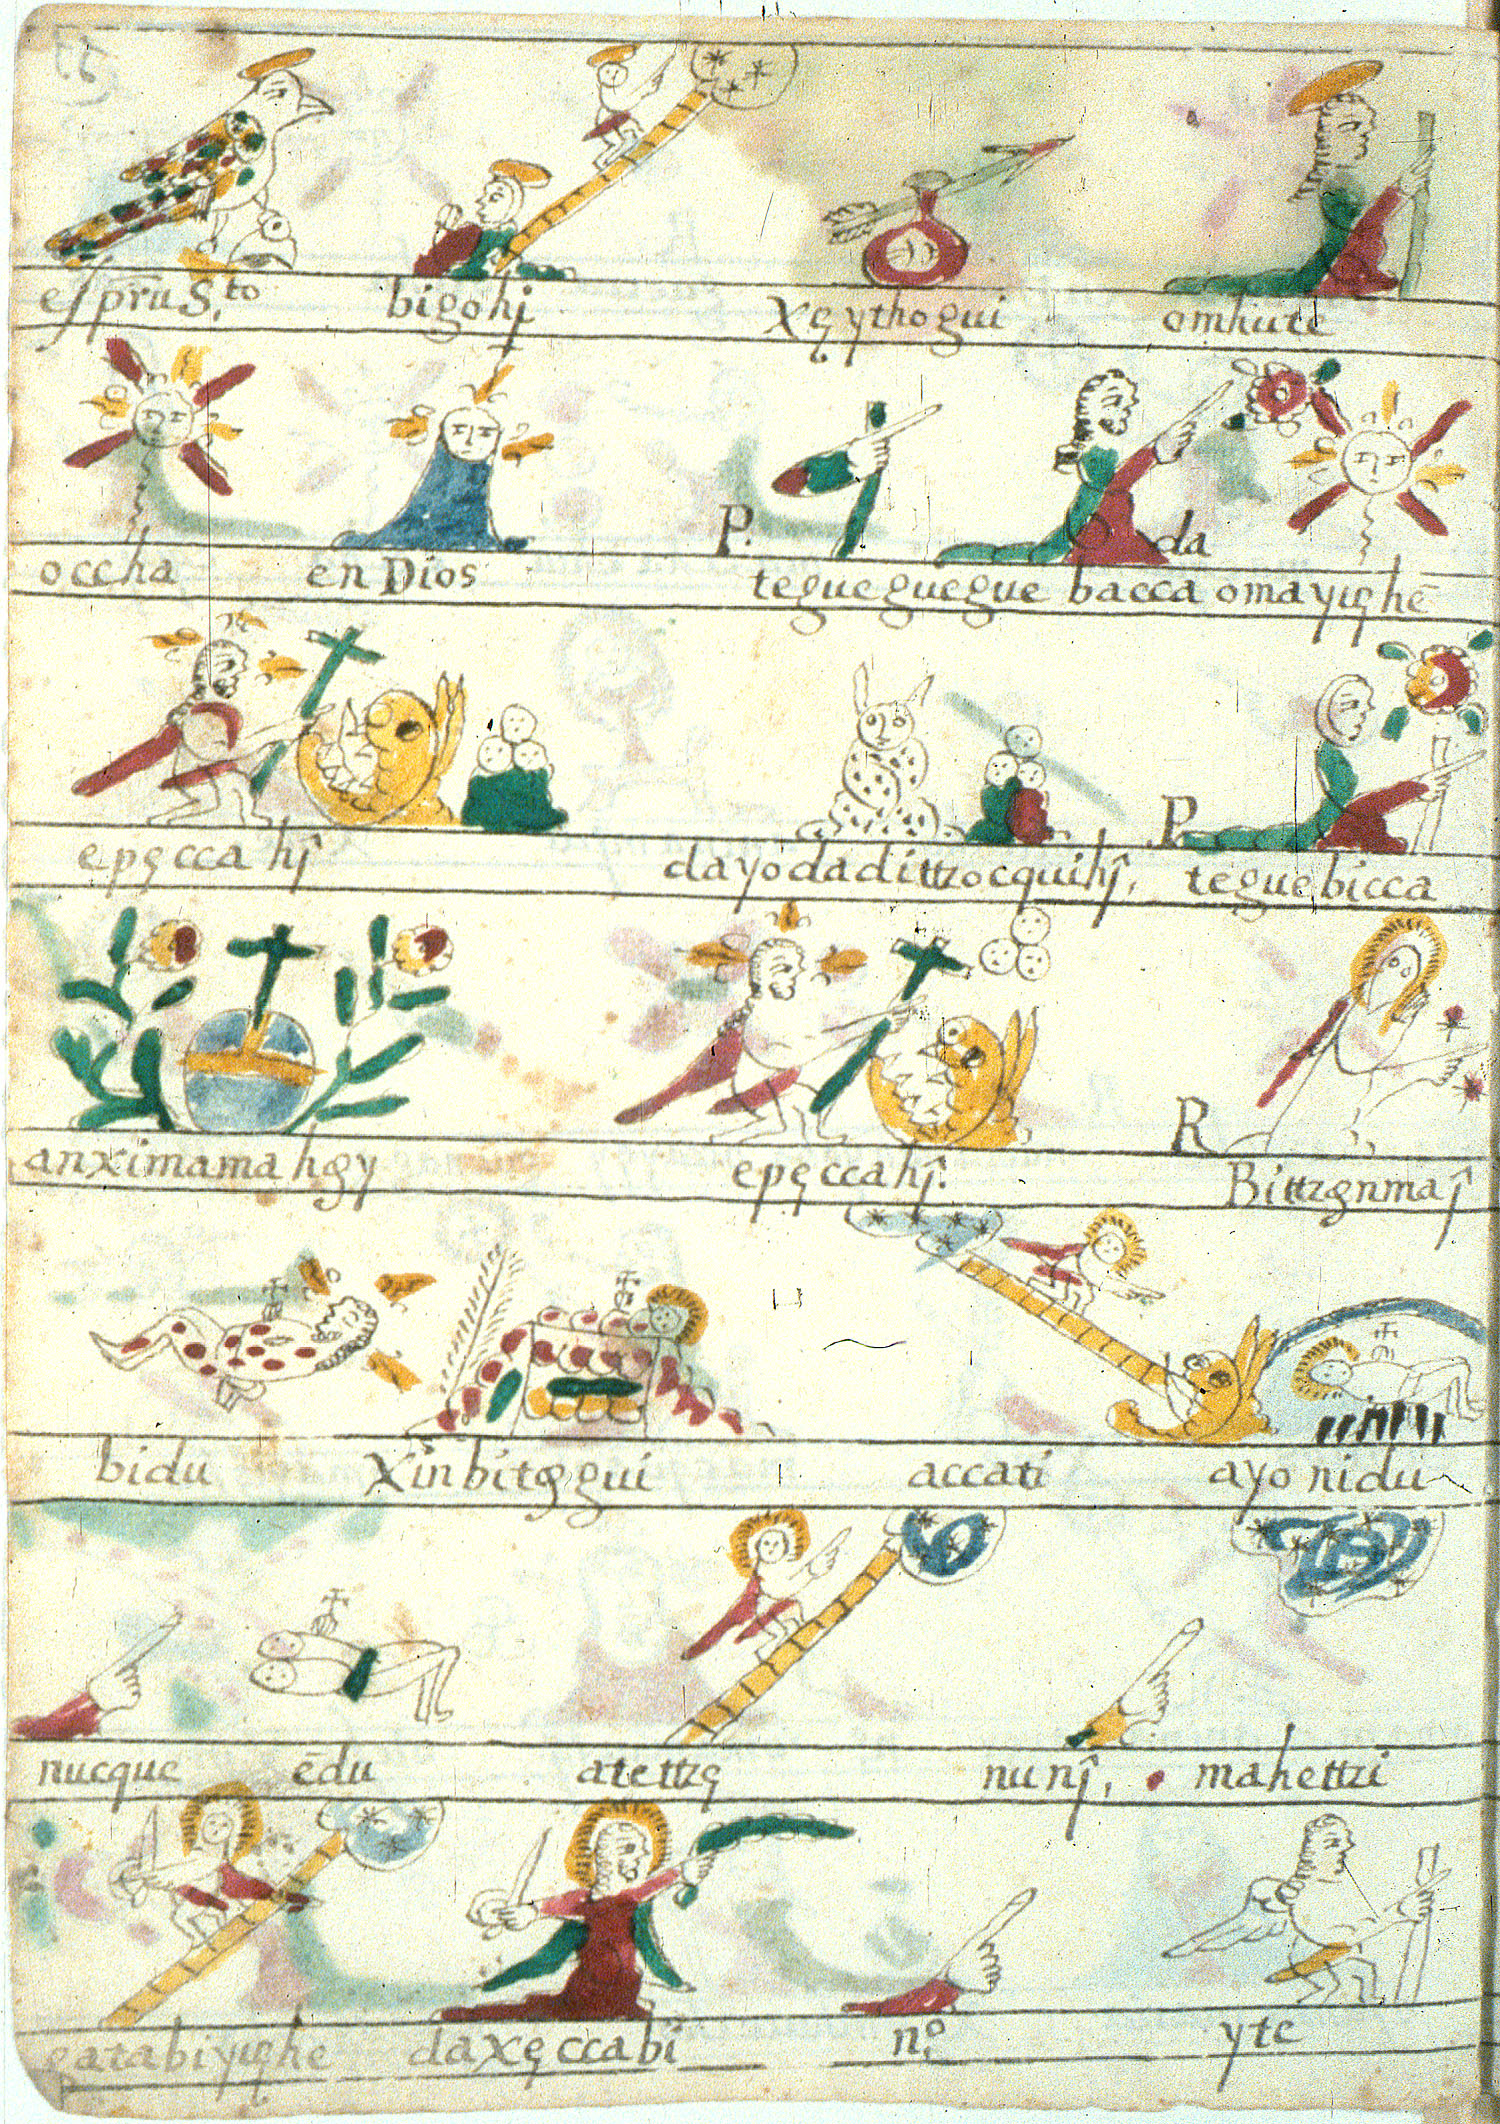 esp̄ru S.to bigohį xęythogui omhute
occha en Dios P. tegueguegue bacca da omayıęhē
epęccahį̂ dayodadittzocquihį̂, P. teguebicca
anximamahęy epęccahį̂. R Bittzęnmaį̂
bidu xinbitęgui accati ayo nidu
nucque ēdu atettzę nunį̂, mahettzi
eatabiyıęhe daxęccabi n.o yte